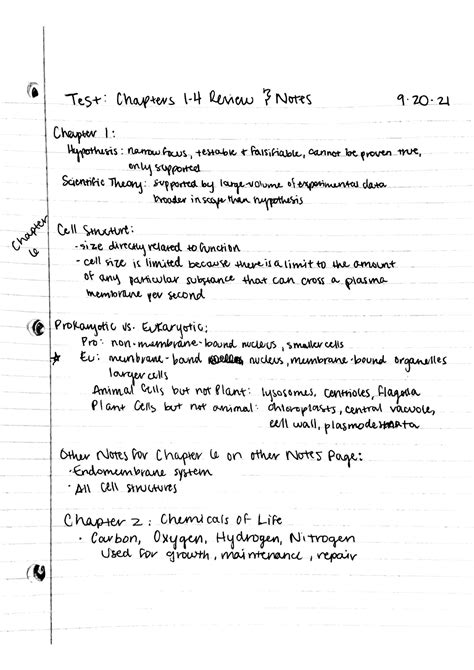 Test: Chapters 1-4 Review & Notes 9.20.21
Chapter 1:
Hypothesis: narrow focus, testable + falsifiable, cannot be proven true,
only supported
Scientific Theory: supported by large volume of experimental data
broader in scope than hypothesis
Chapter
6
Cell Structure:
- size directly related to function
- cell size is limited because there is a limit to the amount
of any particular substance that can cross a plasma
membrane per second
Prokaryotic vs. Eukaryotic:
Pro: non-membrane-bound nucleus, smaller cells
Eu: membrane-bound nucleus, membrane-bound organelles
larger cells
Animal Cells but not Plant: lysosomes, centrioles, flagella
Plant Cells but not animal: chloroplasts, central vacuole,
cell wall, plasmodesmata
Other Notes for Chapter 6 on other Notes Page:
· Endomembrane system
· All cell structures
Chapter 2: Chemicals of Life
· Carbon, Oxygen, Hydrogen, Nitrogen
Used for growth, maintenance, repair